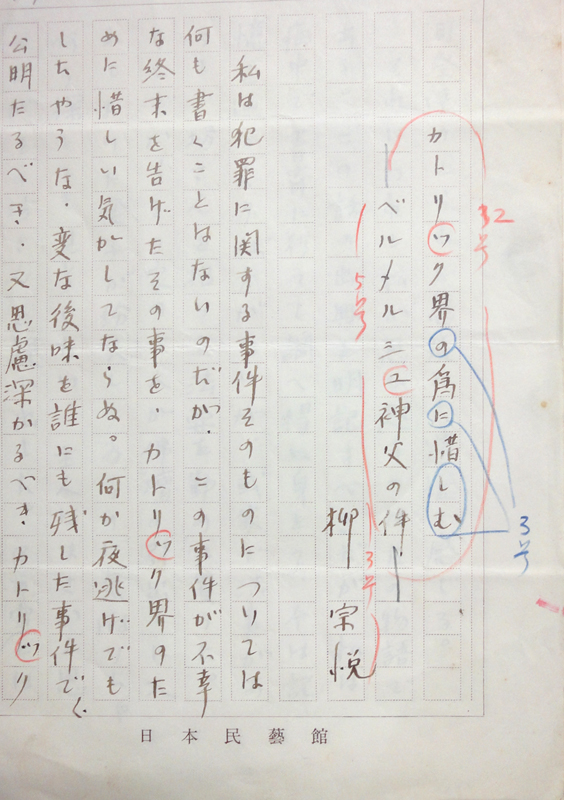 カトリック界の為に惜しむ
―ベルメルシュ神父の件―
柳宗悦
私は犯罪に関する事件そのものについては
何も書くことはないのだが、この事件が不幸
な終末を告げたその事を、カトリック界のた
めに惜しい気がしてならぬ。何か夜逃げでも
したやうな、変な後味を誰にも残した事件で、
公明たるべき、又思慮深かるべき、カトリック
32号
5号
3号
3号
日本民藝館